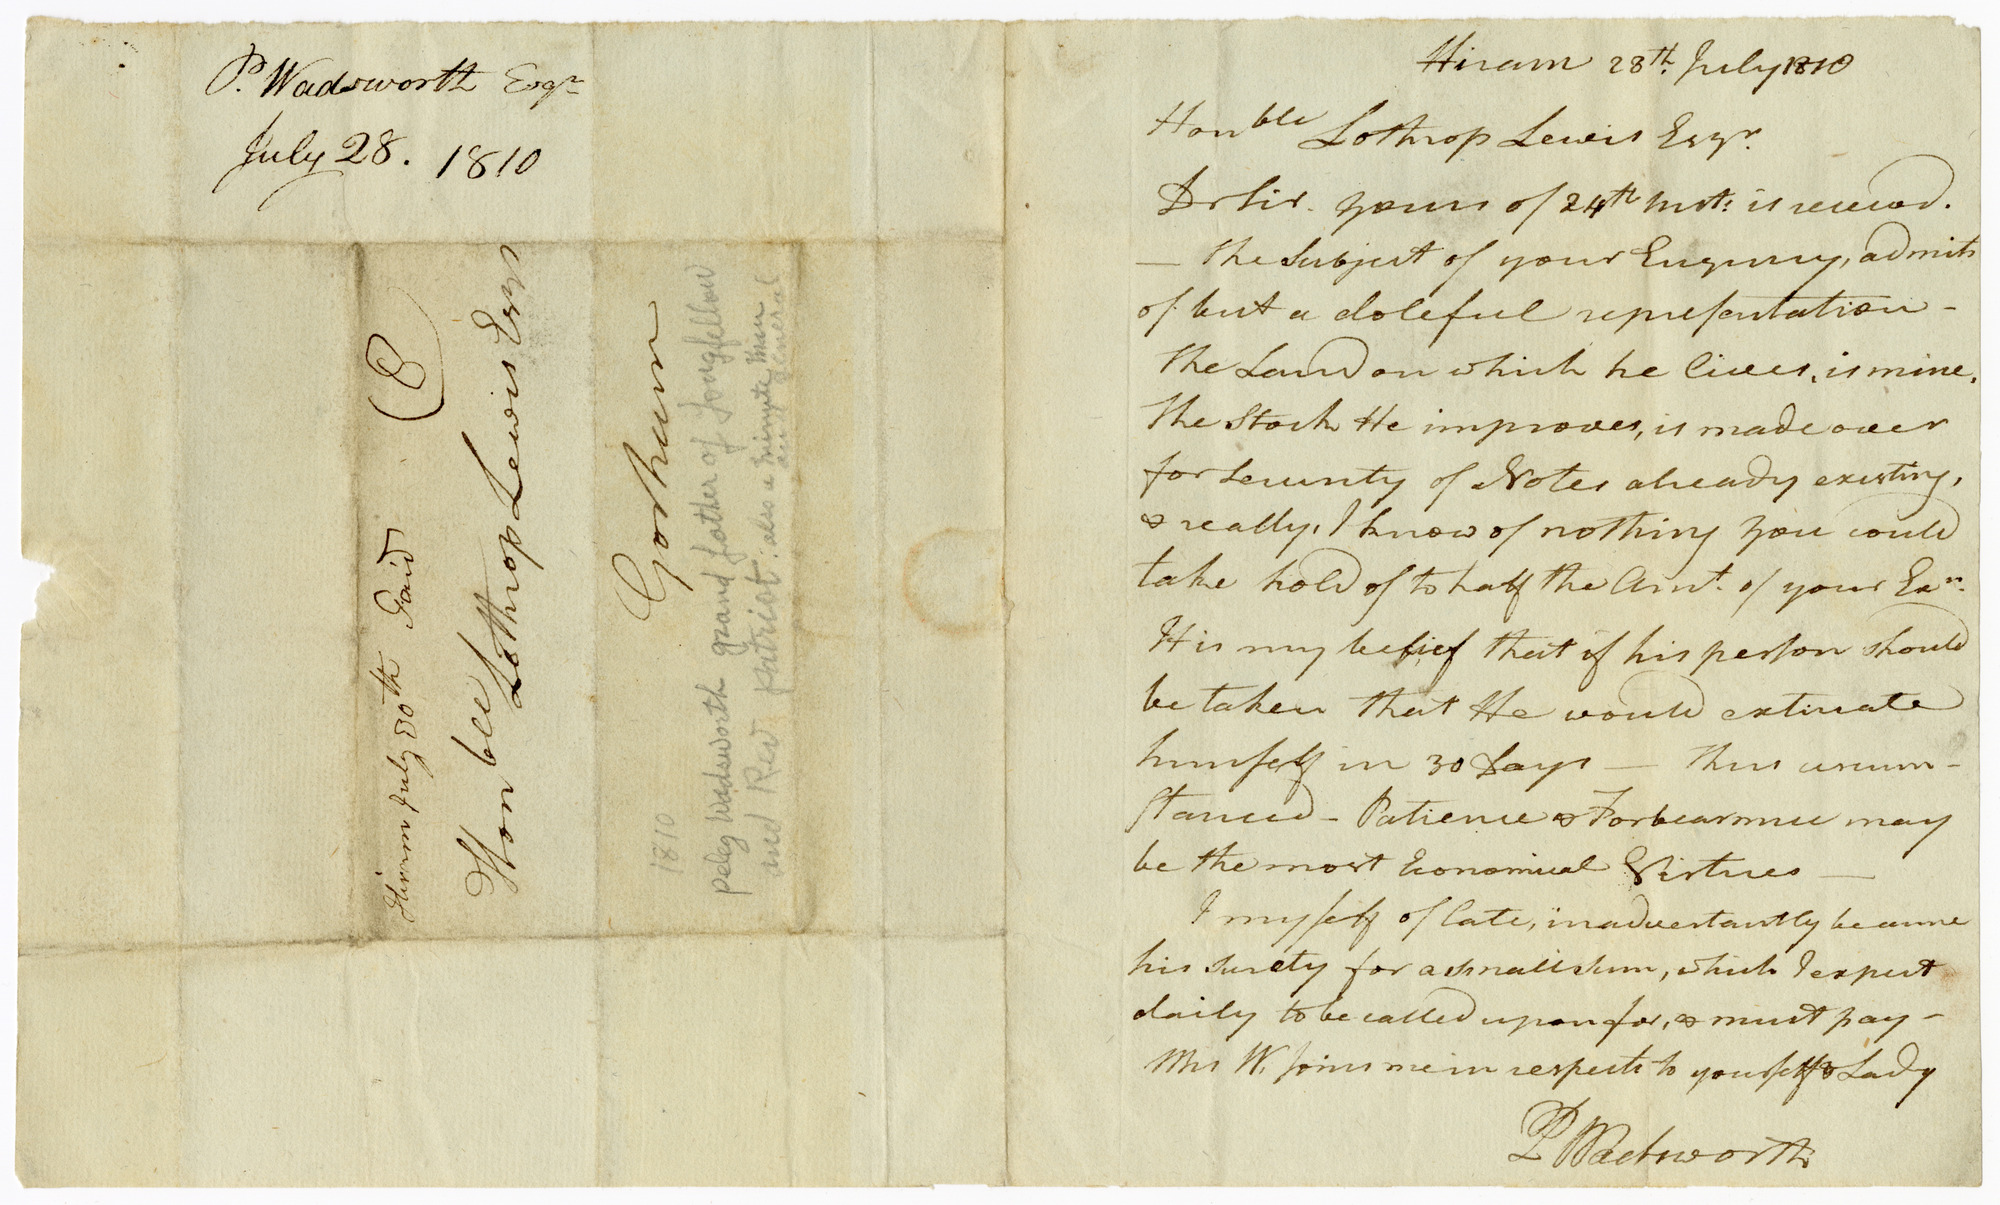 P. Wadsworth Esqr
July 28. 1810
Hiram July 30th Paid
(8
Honble Lothrop Lewis Esqr
Gorham
1810
peleg Wadsworth grand father of Longfellow
and Rev patriot: also a minute man
and General
Hiram 28th. July 1810
Honble Lothrop Lewis Esqr.
Dr Sir. yours of 24th Inst: is received.
— the Subject of your Enquiry, admits
of but a doleful representation -
the Land on which he lives, is mine.
The Stock He improves, is made over
for Security of Notes already existing,
& really, I know of nothing you could
take hold of to half the Amt. of your Exn.
It is my belief that if his person should
be taken that He would extricate
himself in 30 Days — Thus circum-
stanced - Patience & Forbearance may
be the most Economical Virtues —
I myself of late, inadvertantly became
his surety for a small sum, which I expect
daily to be called upon for, & must pay -
Mrs W. joins me in respects to yourself & Lady
P Wadsworth